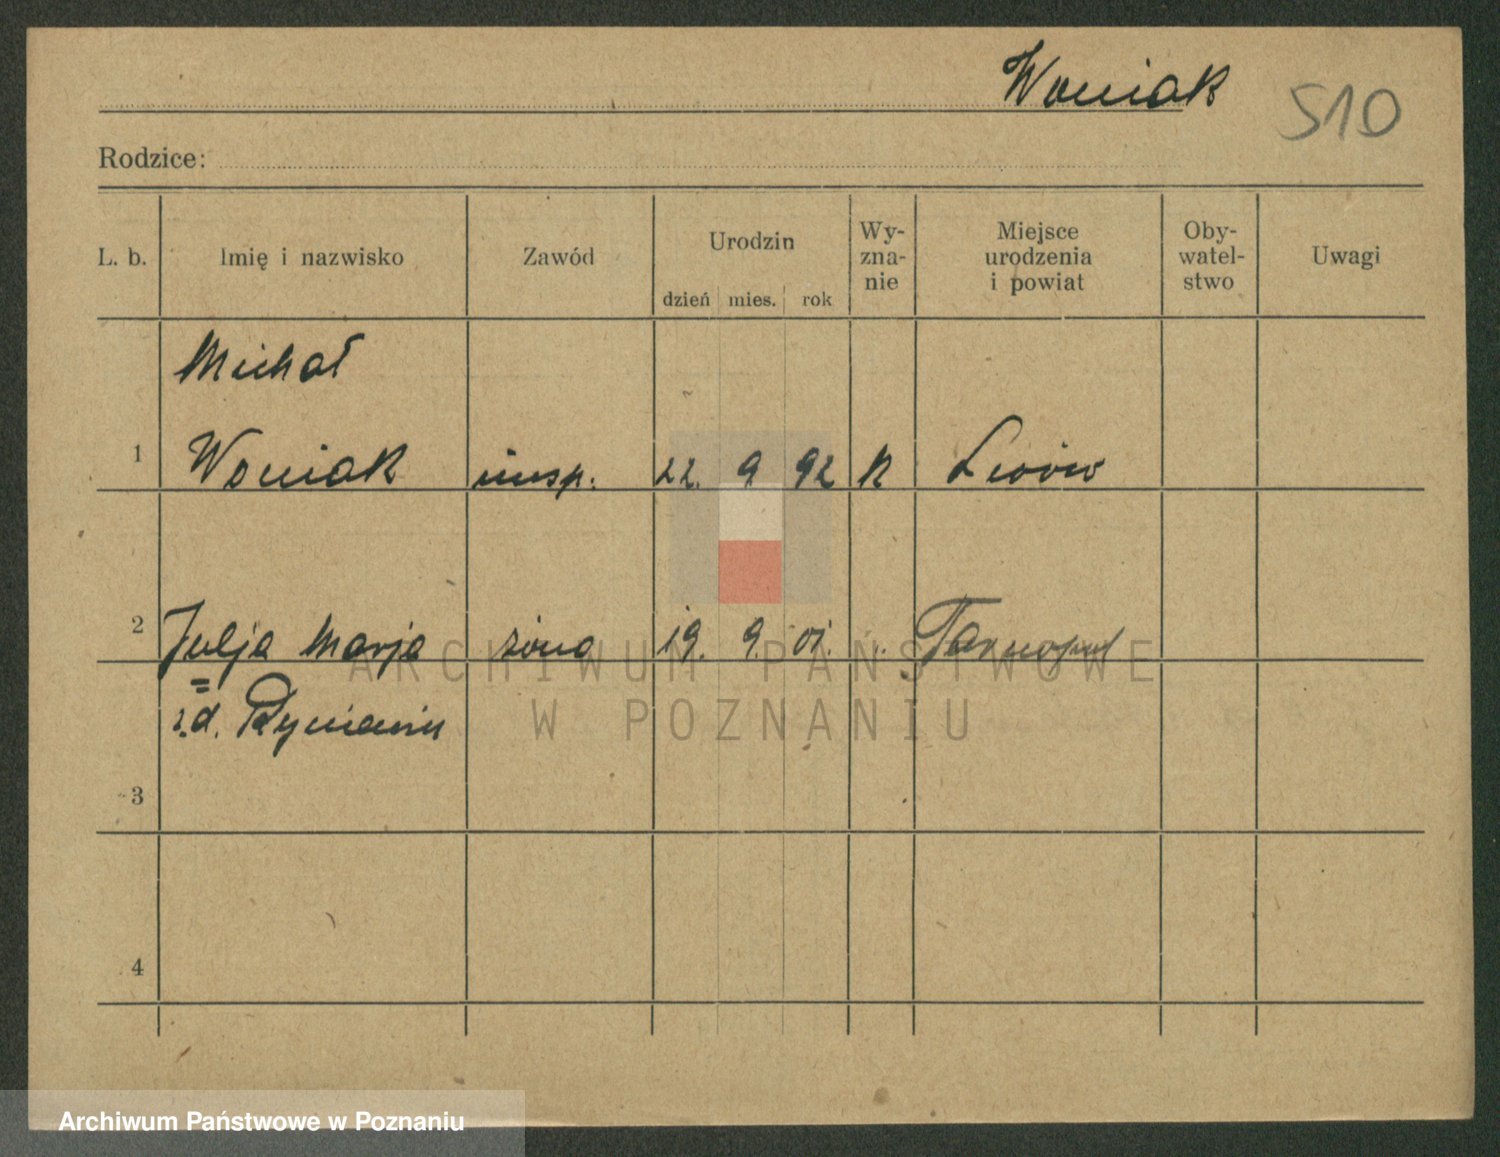 Woniak
510
Rodzice:
L. b.
Imię i nazwisko
Zawód
Urodzin
dzień mies. rok
Wy-
zna-
nie
Miejsce
urodzenia
i powiat
Oby-
watel-
stwo
Uwagi
Michał
1 Woniak insp. 22. 9 92 k Lwów
2 Julja Marja żona 19. 9. 01. " Tarnopol
z. d.
3
4
ARCHIWUM PAŃSTWOWE
W POZNANIU
Archiwum Państwowe w Poznaniu